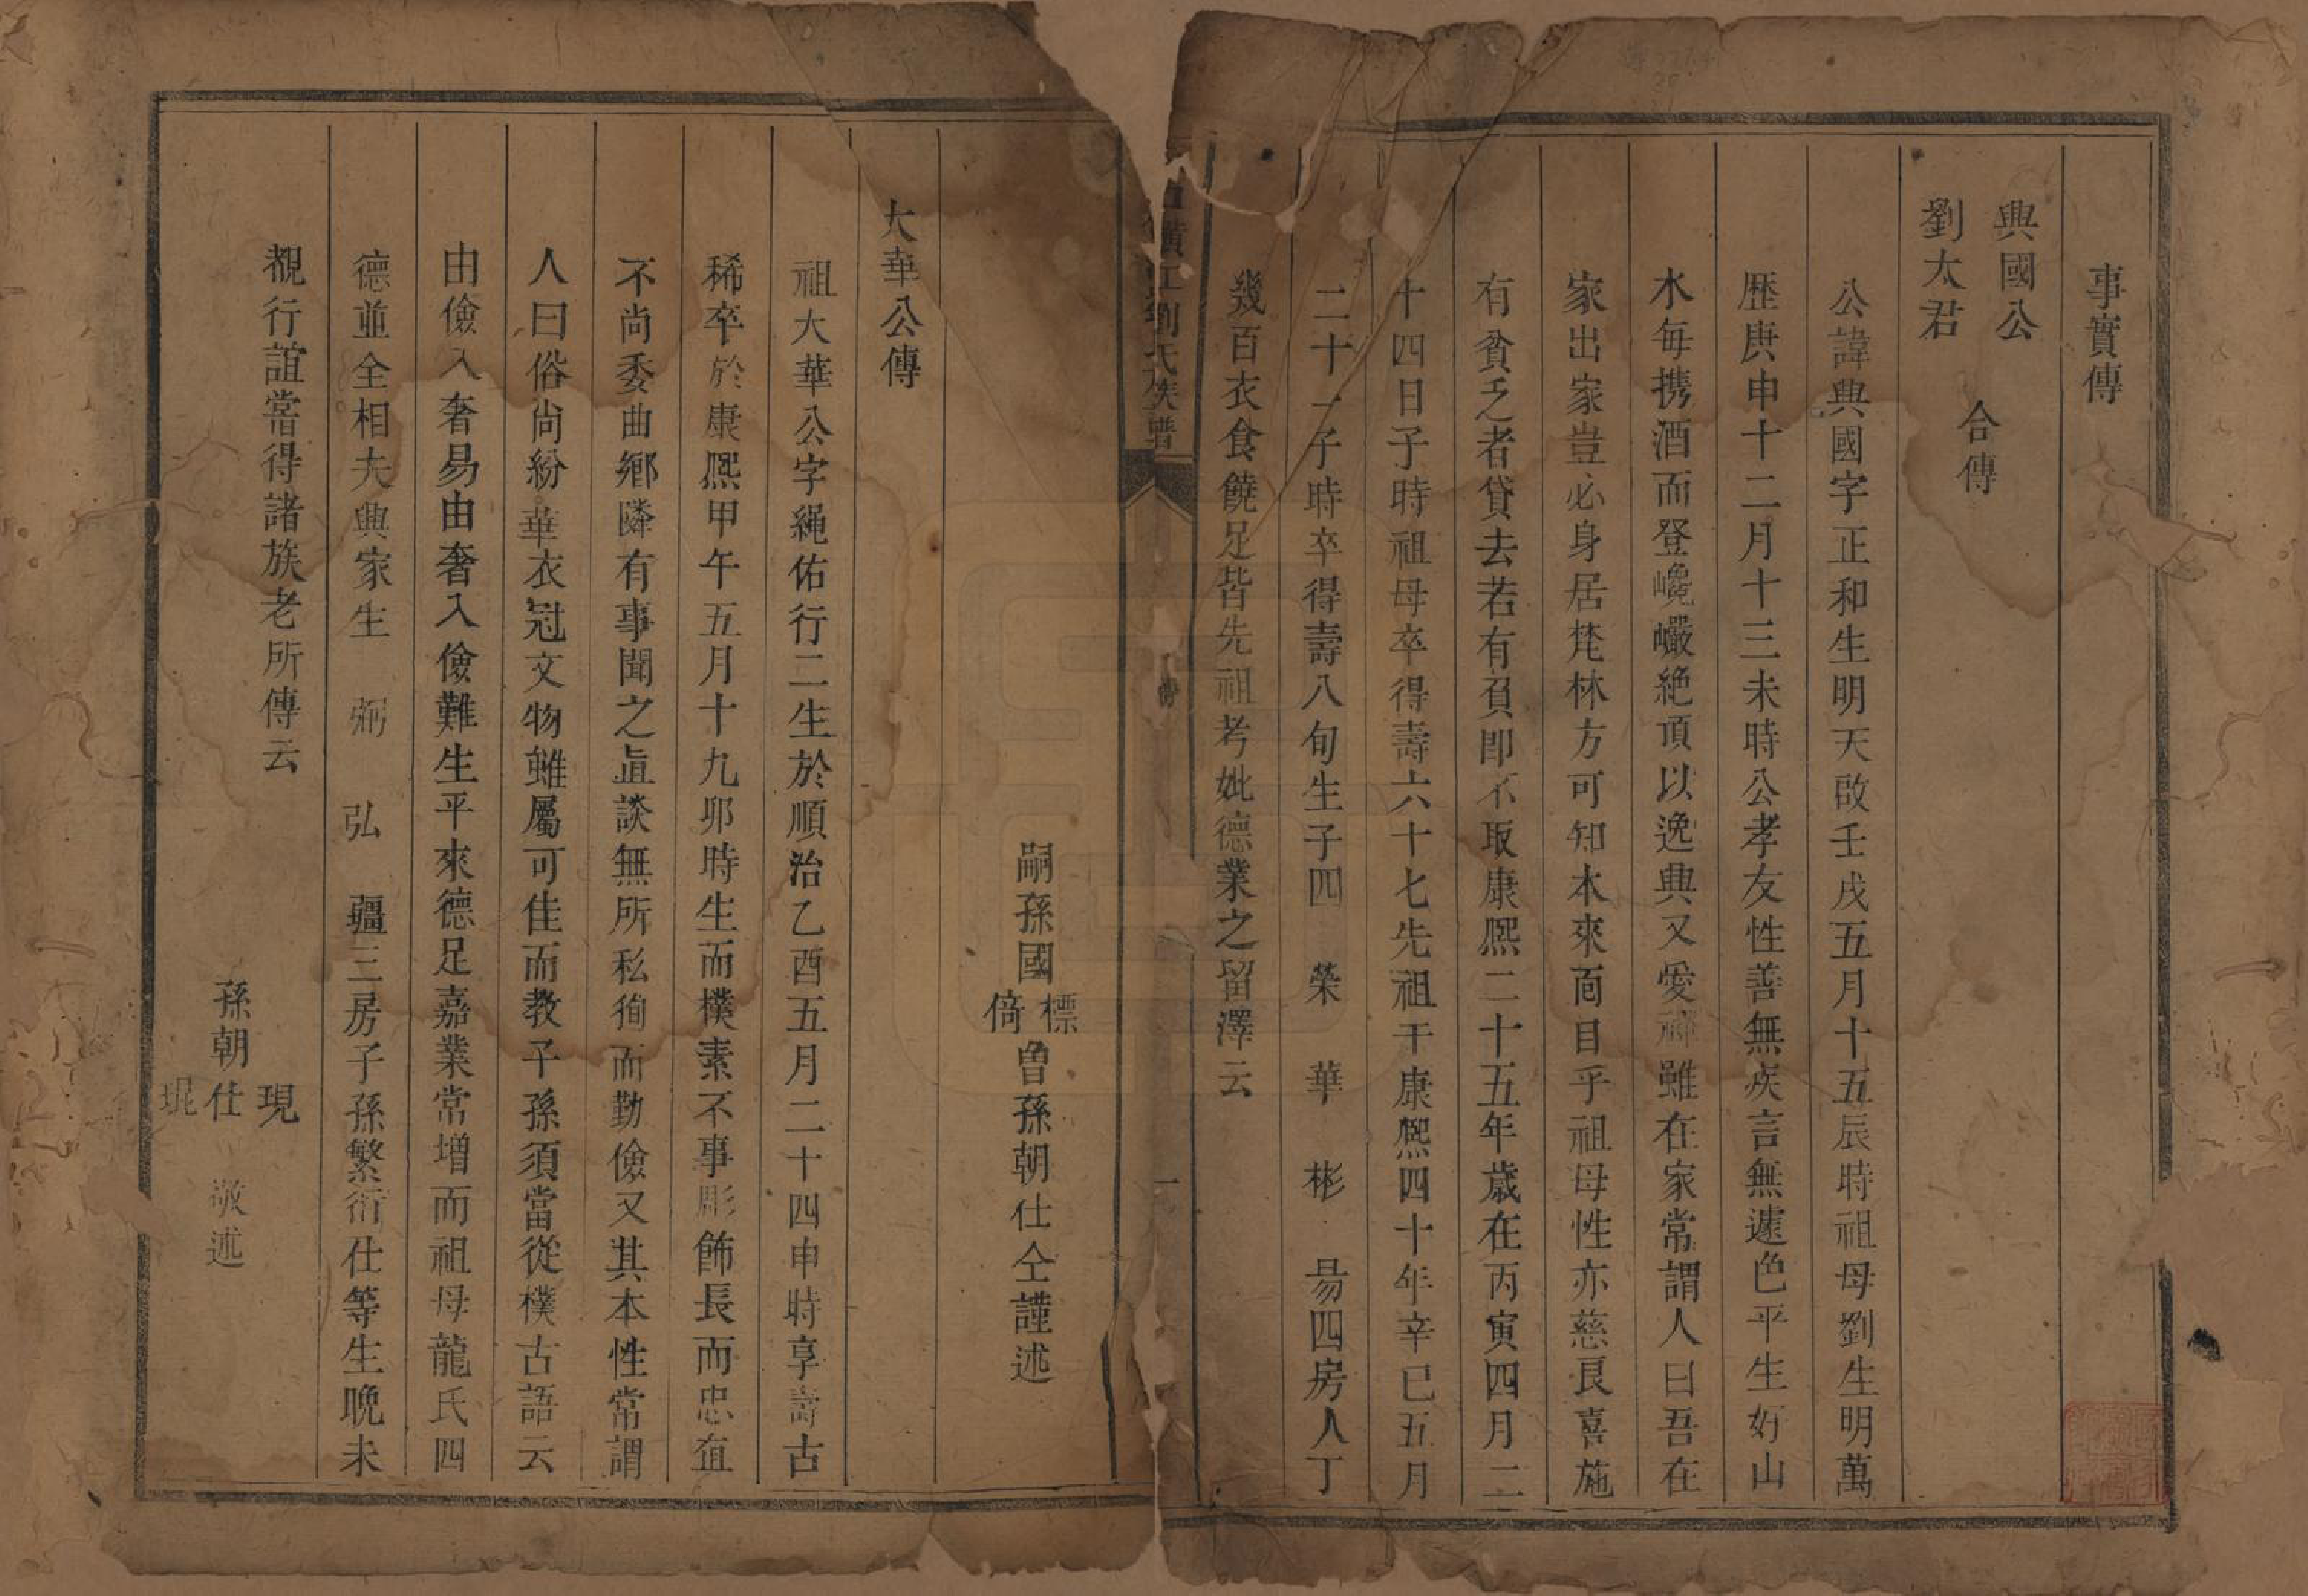 事實傳
興國公
劉太君
合傳
公諱興國字正和生明天啟壬戌五月十五辰時祖母劉生明萬
歷庚申十二月十三未時公孝友性善無疾言無遽色平生好山
水每携酒而登巉巗絶頂以逸興又愛禪雖在家常謂人曰吾在
家出家豈必身居梵林方可知本來面目乎祖母性亦慈良喜施
有貧乏者貸去若有負即不取康熙二十五年歲在丙寅四月二
十四日子時祖母卒得壽六十七先祖于康熙四十年辛巳五月
二十一子時卒得壽八旬生子四 榮 華 彬 昜四房人丁
幾百衣食饒足皆先祖考妣德業之留澤云
江劉氏族譜
傳
一
嗣孫國標倚曾孫朝仕仝謹述
大華公傳
祖大華公字繩佑行二生於順治乙酉五月二十四申時享壽古
稀卒於康熙甲午五月十九卯時生而樸素不事彫飾長而忠直
不尚委曲鄉隣有事聞之直談無所私徇而勤儉又其本性常謂
人曰俗尚紛華衣冠文物雖屬可佳而教子孫須當從樸古語云
由儉入奢易由奢入儉難生平來德足嘉業常增而祖母龍氏四
德並全相夫興家生 弼 弘 疆三房子孫繁衍仕等生晚未
覩行誼常得諸族老所傳云
孫朝現仕琨 敬述